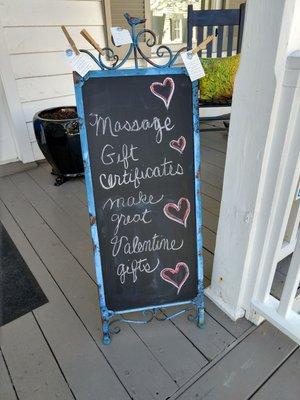 Massage
Gift
Certificates
make
great
Valentine
gifts